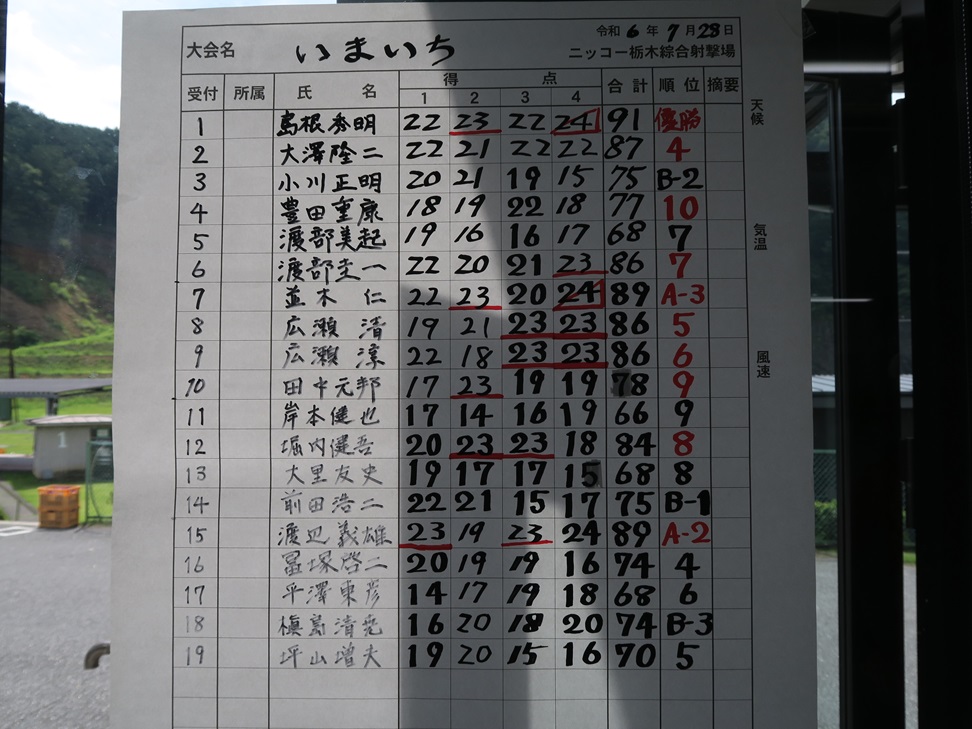 令和 6 年 7 月 28 日
大会名 いまいち ニッコー栃木綜合射撃場
受付 所属 氏 名 得 点 合計 順位 摘要
1 2 3 4
1 島根秀明 22 23 22 24 91 優勝
2 大澤隆二 22 21 22 22 87 4
3 小川正明 20 21 19 15 75 B-2
4 豊田重康 18 19 22 18 77 10
5 渡部美起 19 16 16 17 68 7
6 渡部圭一 22 20 21 23 86 7
7 並木 仁 22 23 20 24 89 A-3
8 広瀬 清 19 21 23 23 86 5
9 広瀬 涼 22 18 23 23 86 6
10 田中元邦 17 23 19 19 78 9
11 岸本健也 17 14 16 19 66 9
12 堀内健吾 20 23 23 18 84 8
13 大里友史 19 17 17 15 68 8
14 前田浩二 22 21 15 17 75 B-1
15 渡辺義雄 23 19 23 24 89 A-2
16 冨塚啓二 20 19 19 16 74 4
17 平澤東彦 14 17 19 18 68 6
18 槇島清尭 16 20 18 20 74 B-3
19 坪山増夫 19 20 15 16 70 5
天候
気温
風速
1